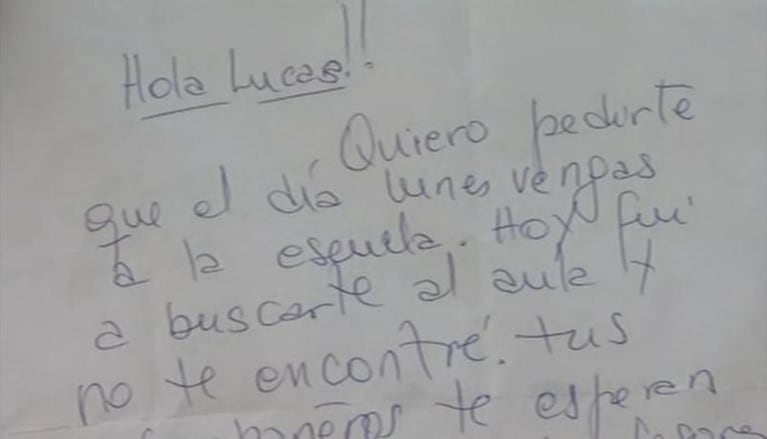 Hola Lucas!!
Quiero pedirte
que el día lunes vengas
a la escuela. Hoy fui
a buscarte al aula y
no te encontré. tus
te esperan